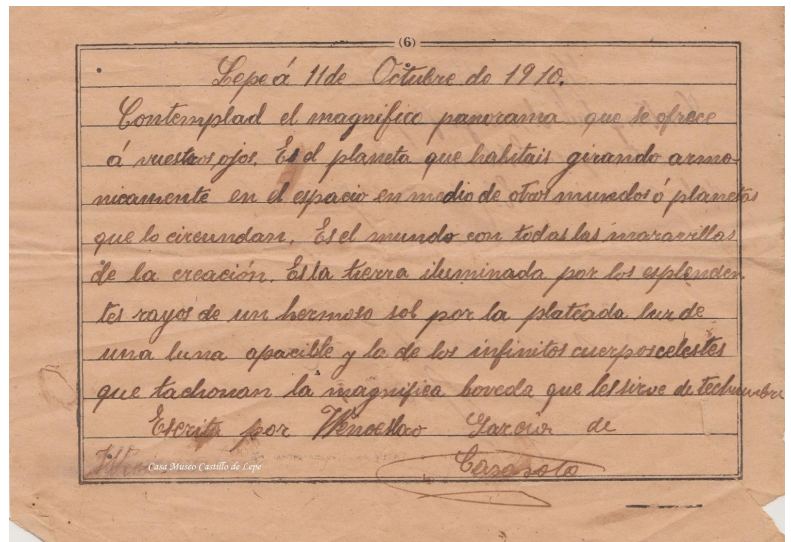 (6)
Lepe á 11 de Octubre de 1910.
Contemplad el magnifico panorama que se ofrece
á vuestros ojos. Es el planeta que habitais girando armo-
nicamente en el espacio en medio de otros mundos ó planetas
que lo circundan. Es el mundo con todas las maravillas
de la creación. Es la tierra iluminada por los esplenden-
tes rayos de un hermoso sol por la plateada luz de
una luna apacible y la de los infinitos cuerpos celestes
que tachonan la magnifica boveda que les sirve de techumbre
Escrito por Wenceslao Garcia de
Casa Museo Castillo de Lepe